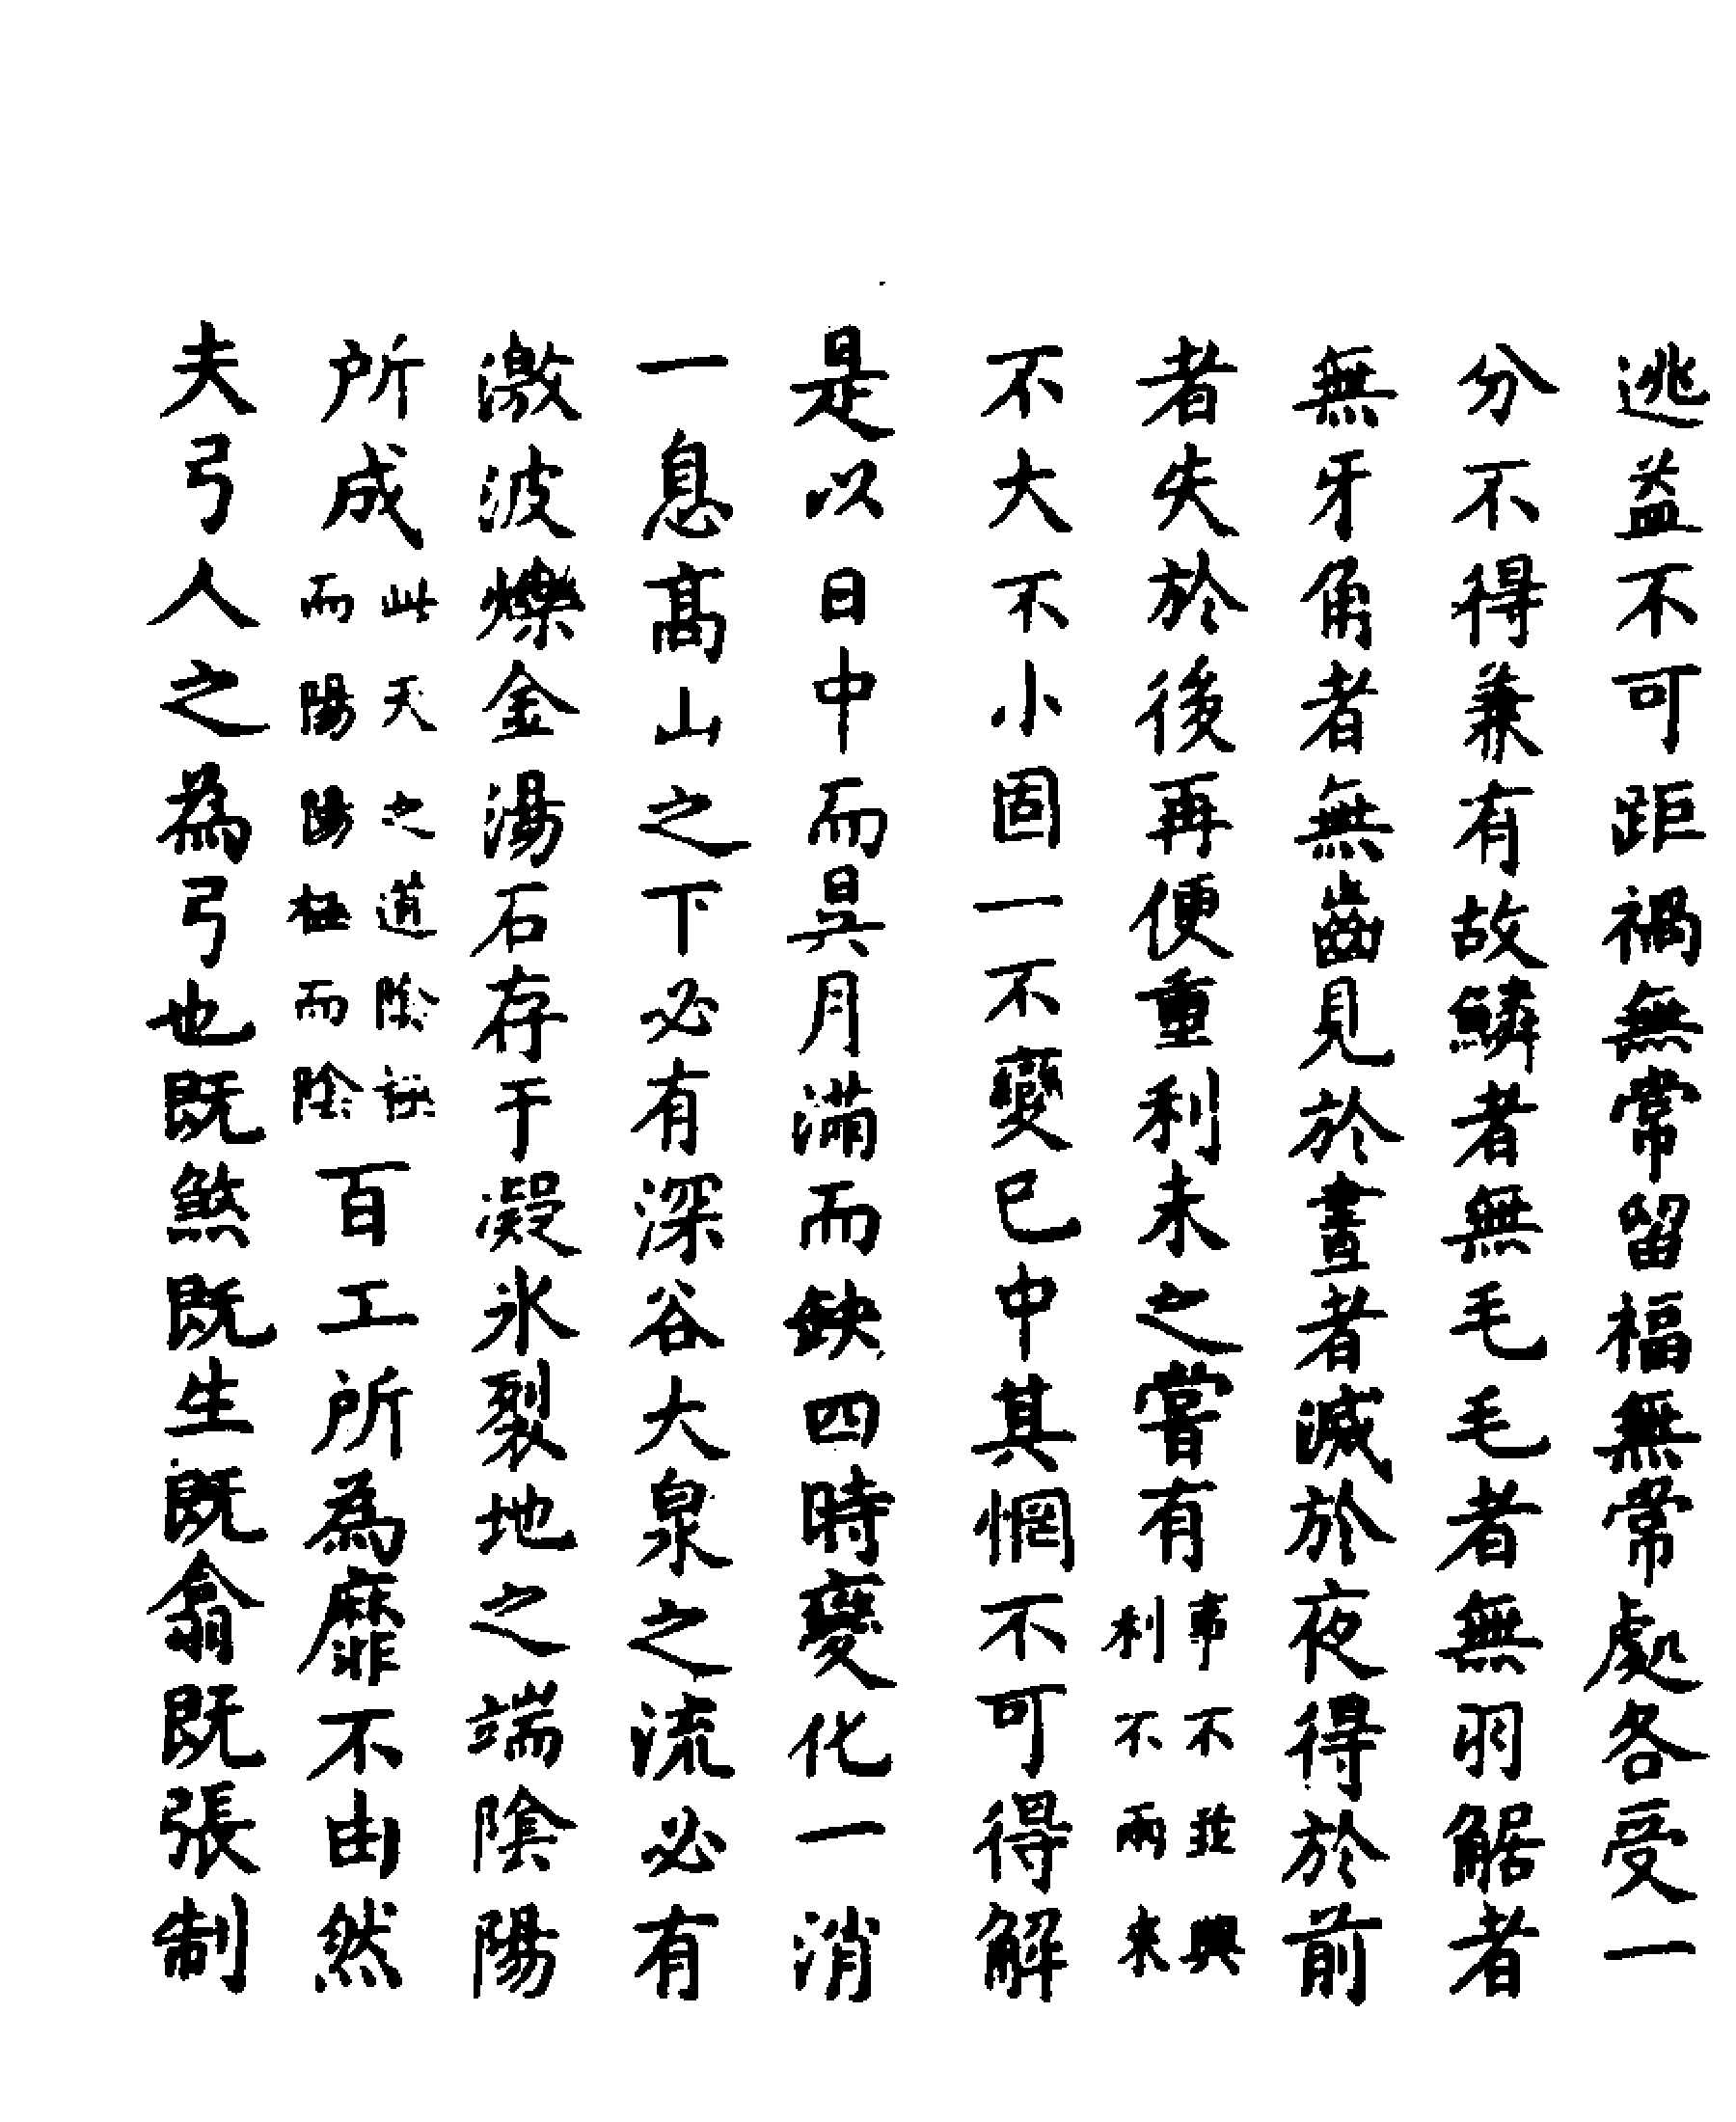 逃益不可距禍無常留福無常處各受一
分不得兼有故鱗者無毛毛者無羽觡者
無牙角者無齒見於晝者滅於夜得於前
者失於後再便重利未之嘗有事不並興利不兩來
不大不小固一不變已中其惘不可得解
是以日中而昃月滿而缺四時變化一消
一息髙山之下必有深谷大泉之流必有
激波爍金湯石存于凝氷裂地之端陰陽
所成此天之道陰極而陽陽極而陰百工所為靡不由然
夫弓人之為弓也既煞既生既翕既張制